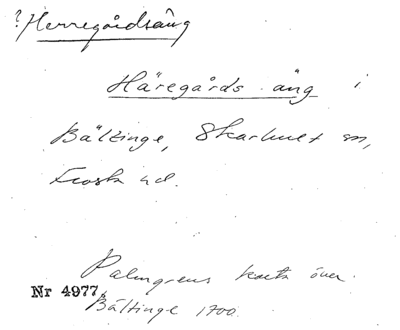 ? Herregårdsäng
Häregårds äng i
Bältinge, Skarhult sn,
Frosta hd.
Palmgrens karta över
Nr 4977, Bältinge 1700.